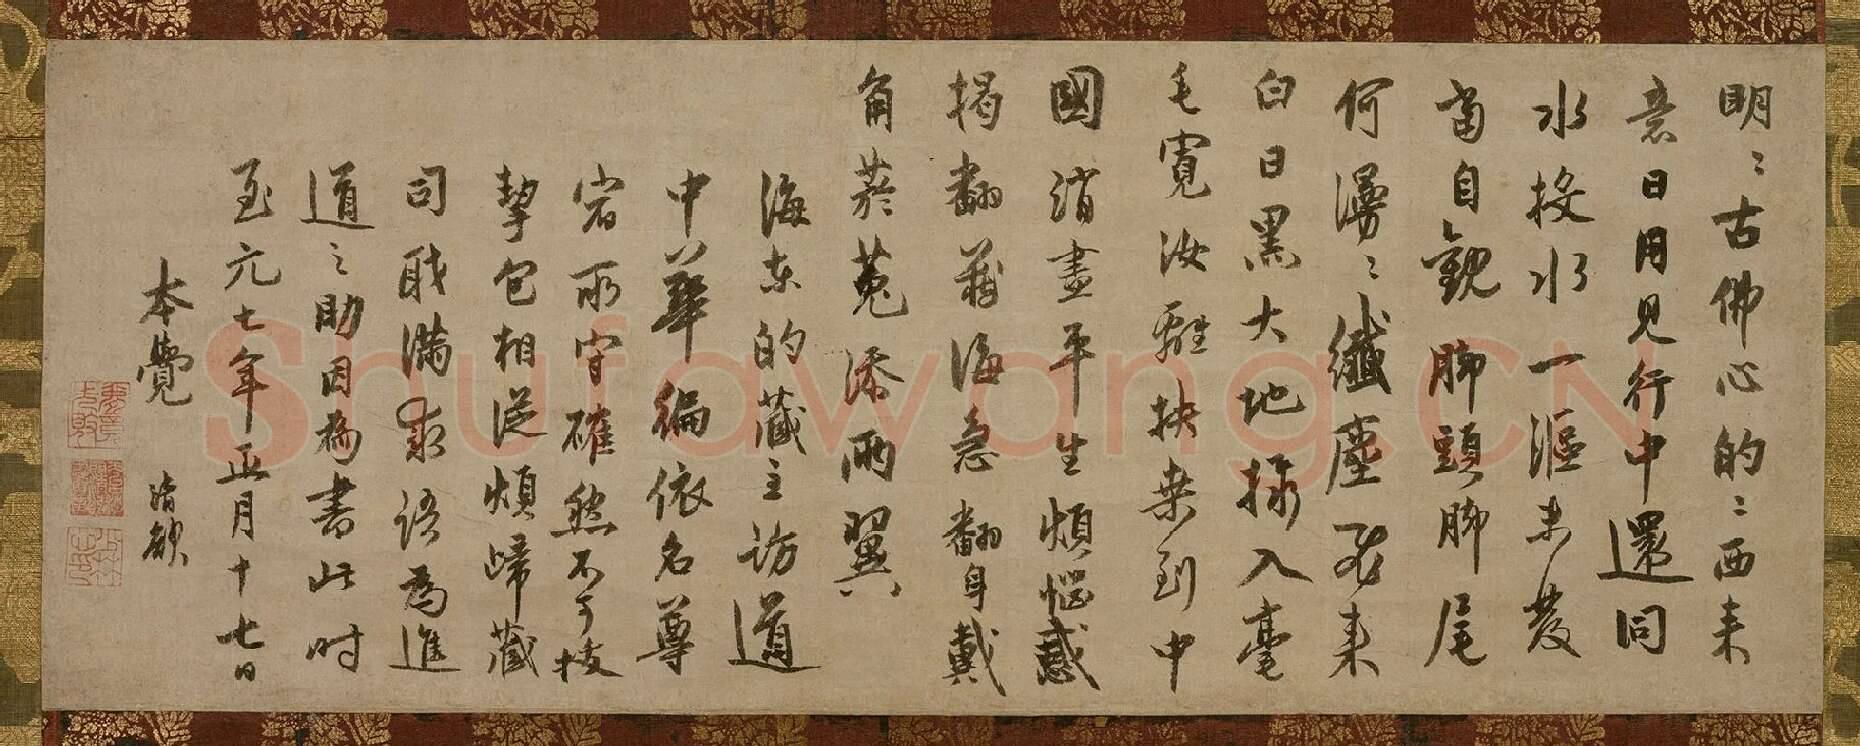 明〻古佛心的〻西来
意日用見行中還同
水投水一漚未發
當自觀脚頭脚尾
何漫〻纖塵不来
白日黑大地揉入毫
毛寬汝離扶桒到中
國消盡平生煩惱惑
揭翻藏海急翻身戴
角菸菟添兩翼
海東的藏主訪道
中華徧依名尊
宿所守確然不可拔
挈包相從煩歸藏
司職滿求語為進
道之助因為書此时
至元七年正月十七日
本覺 清欲
Shufawang.CN